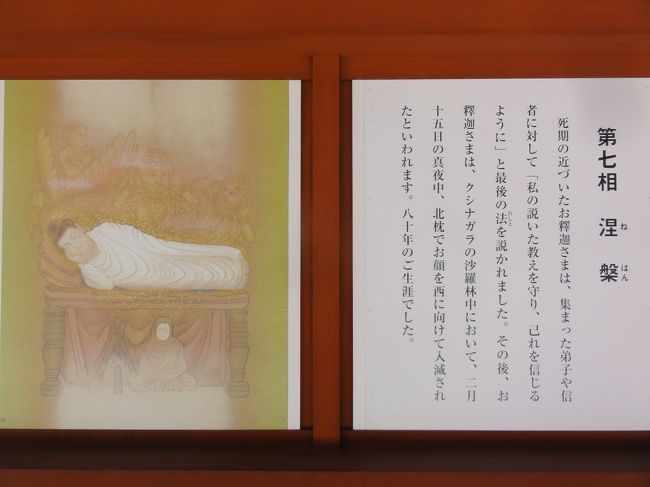 第七相　涅槃
ねはん
死期の近づいたお釋迦さまは、集まった弟子や信
者に対して「私の説いた教えを守り、己れを信じる
ように」と最後の法を説かれました。その後、お
おしえ
釋迦さまは、クシナガラの沙羅林中において、二月
十五日の真夜中、北枕でお顔を西に向けて入滅され
たといわれます。八十年のご生涯でした。